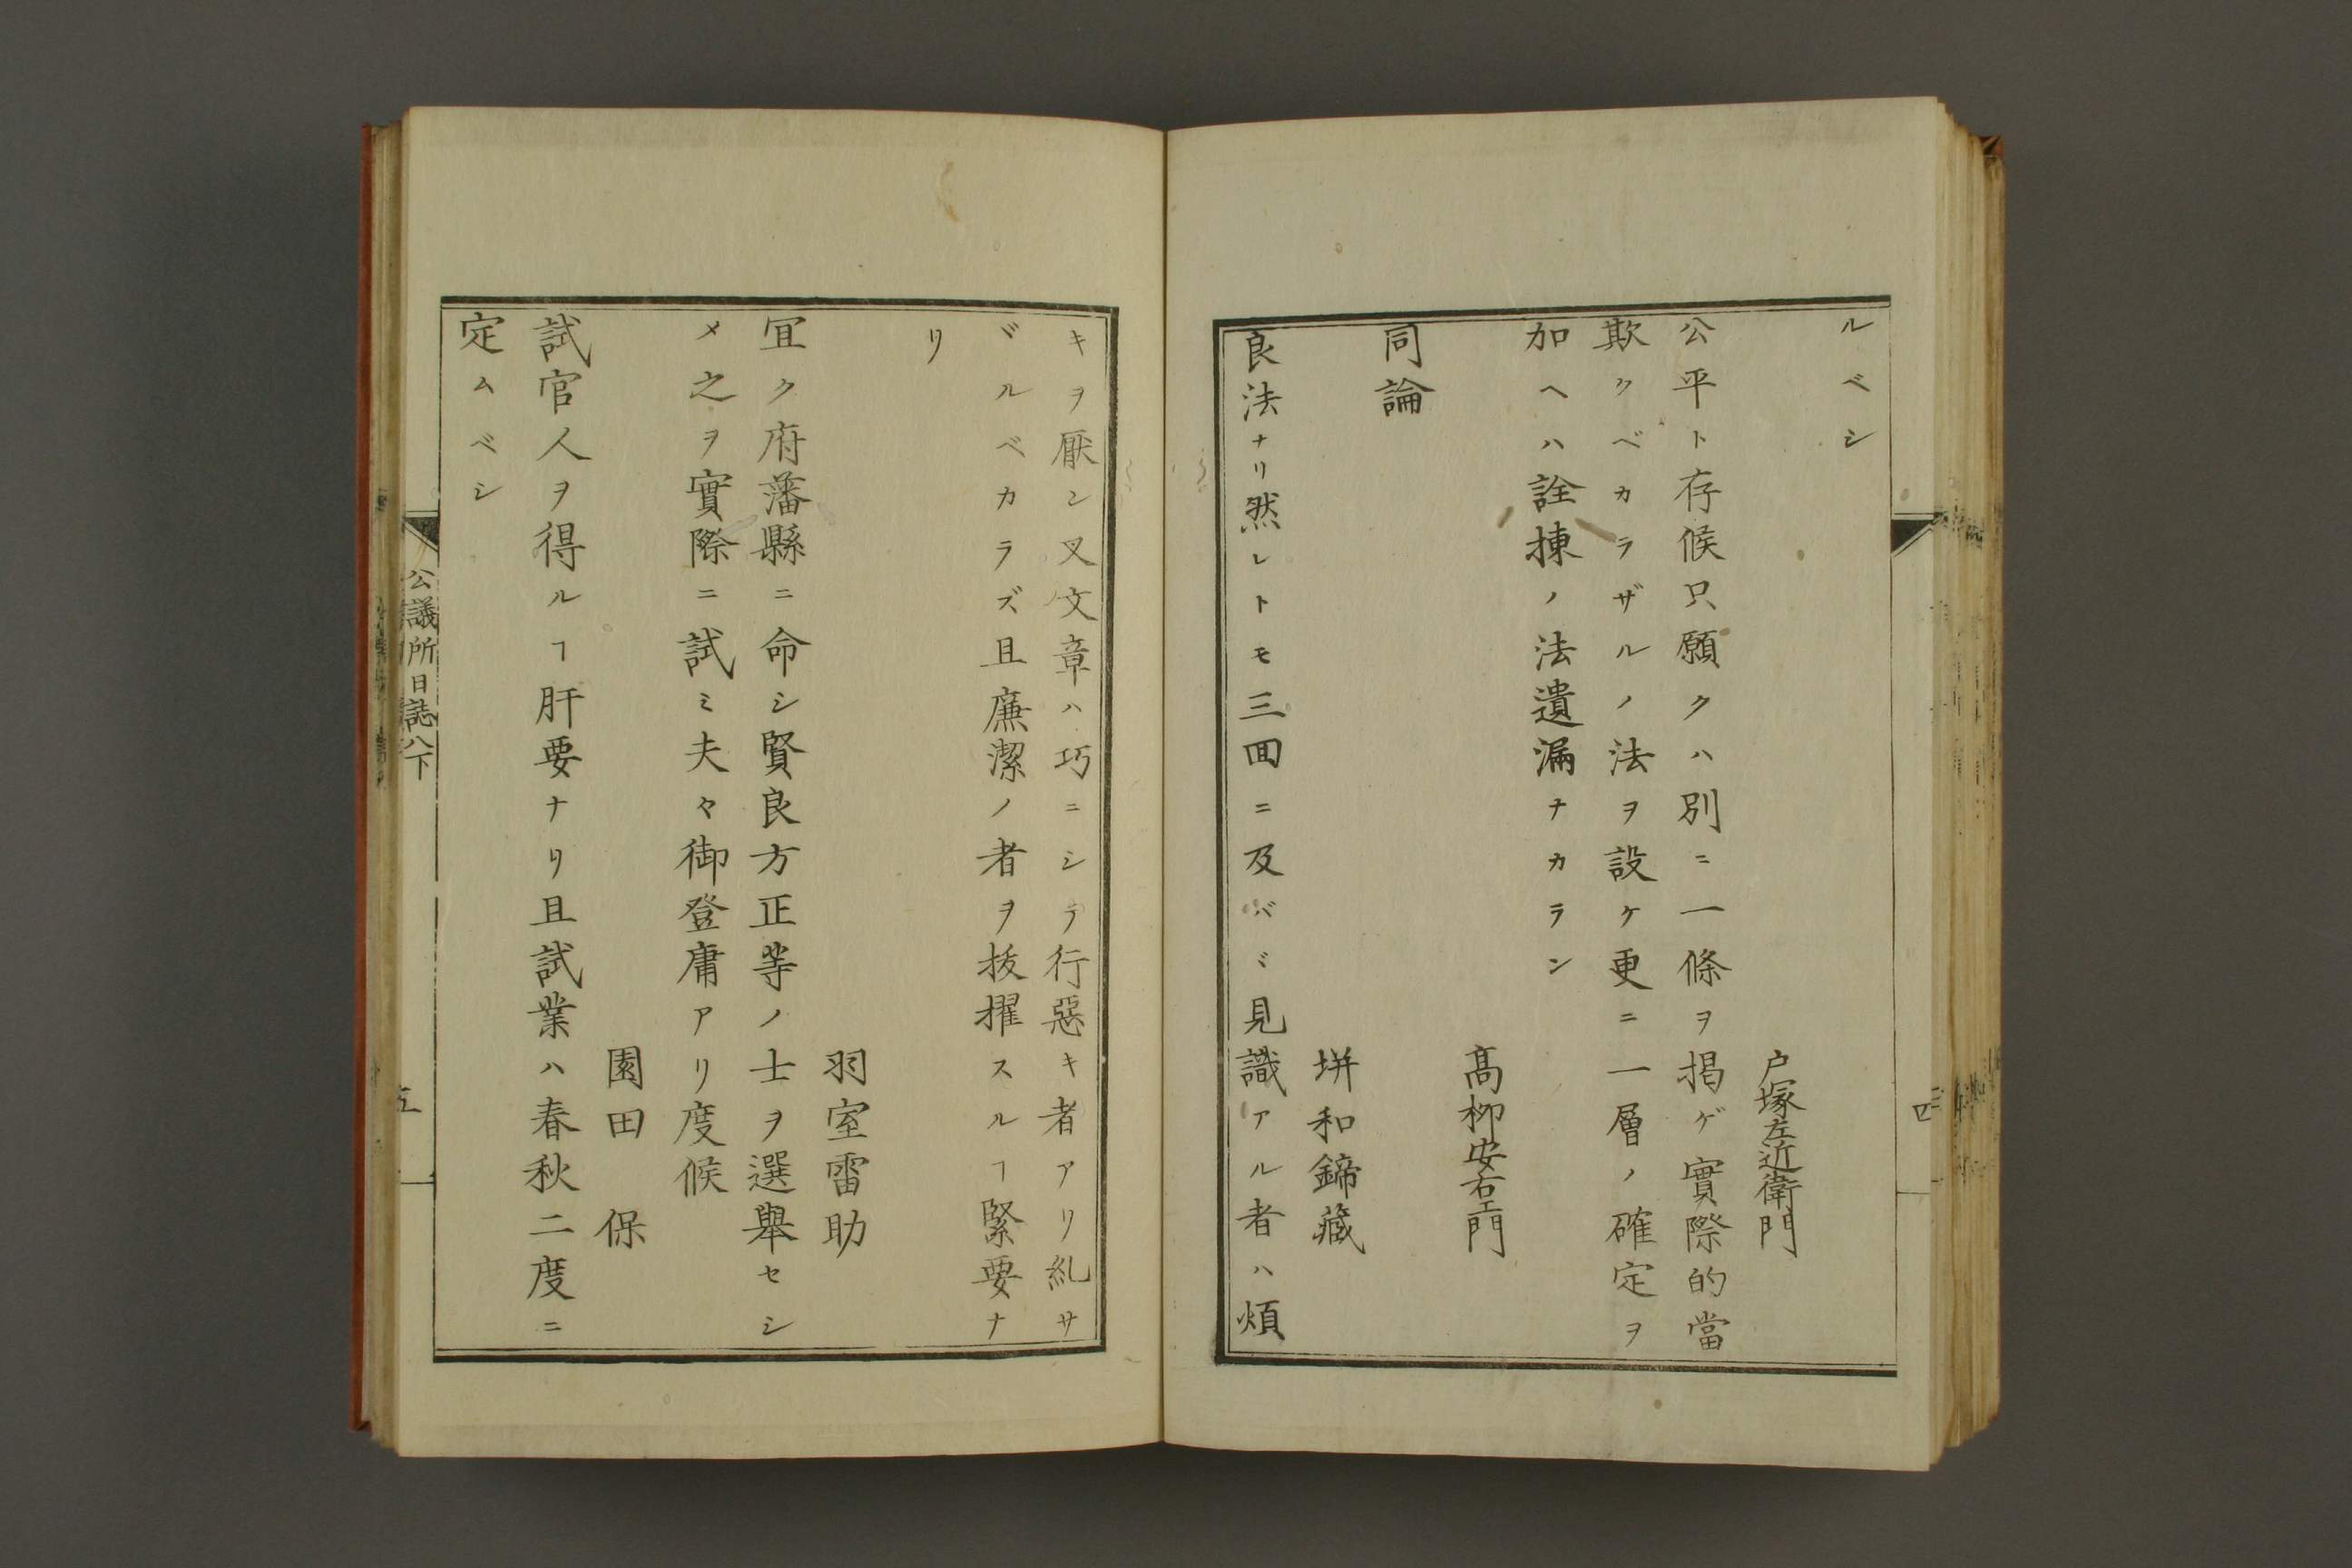 ルベシ
戸塚左近衛門
公平ト存候只願クハ別ニ一條ヲ掲ゲ實際的當
欺クベカラザルノ法ヲ設ケ更ニ一層ノ確定ヲ
加ヘハ詮揀ノ法遺漏ナカラン
髙柳安右エ門
同論
垪和鍗藏
良法ナリ然レトモ三囬ニ及バヾ見識アル者ハ煩
四
キヲ厭ン又文章ハ巧ニシテ行惡キ者アリ糺サ
ヾルベカラズ且廉潔ノ者ヲ抜擢スルヿ緊要ナ
リ
羽室雷助
冝ク府藩縣ニ命シ賢良方正等ノ士ヲ選舉セシ
メ之ヲ實際ニ試ミ夫々御登庸アリ度候
園田保
試官人ヲ得ルヿ肝要ナリ且試業ハ春秋二度ニ
定ムベシ
公議所日誌八下
五